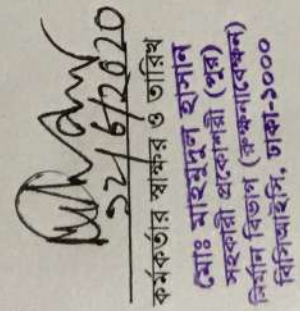 ১২/৬/২০২০
কর্মকর্তার স্বাক্ষর ও তারিখ
মোঃ মাহমুদুল হাসান
সহকারী প্রকৌশলী (পুর)
নির্মান বিভাগ (রক্ষনাবেক্ষন)
বিসিআইসি, ঢাকা-১০০০